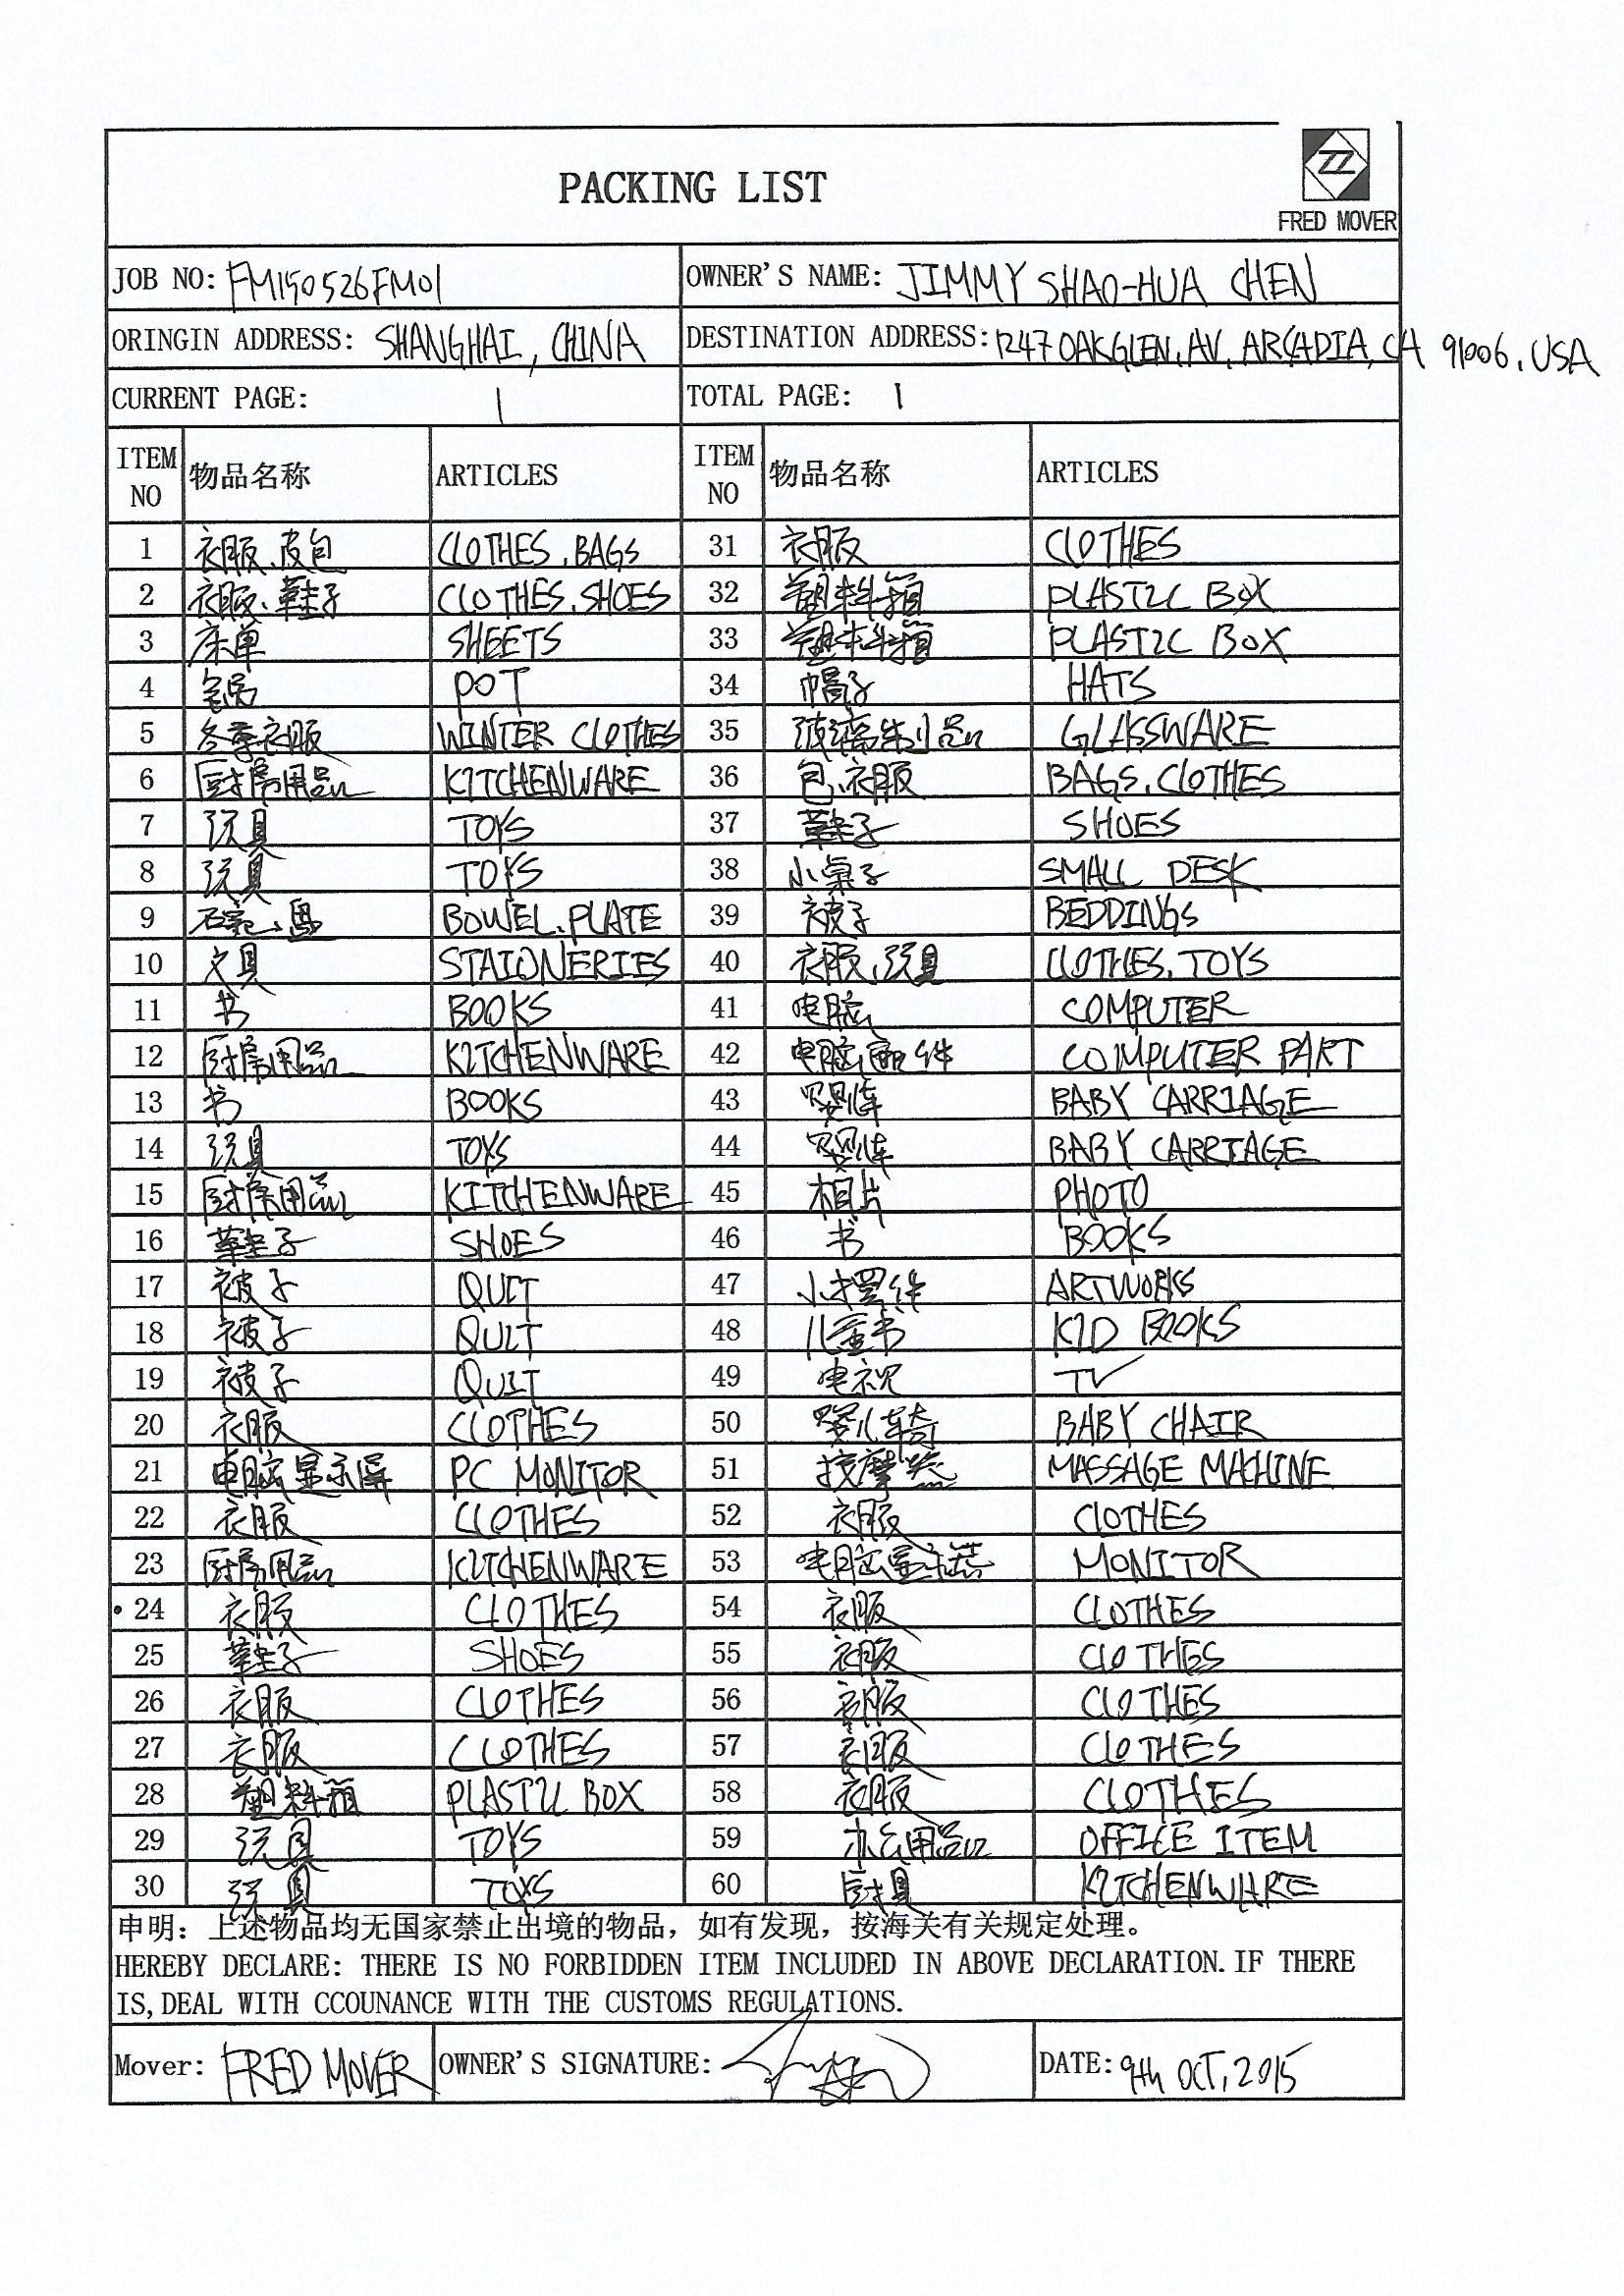 PACKING LIST
ZZ
FRED MOVER
JOB NO: FM150526FM01 OWNER'S NAME: JIMMY SHAO-HUA CHEN
ORINGIN ADDRESS: SHANGHAI, CHINA DESTINATION ADDRESS: 1247 OAKGLEN. AV. ARCADIA, CA 91006. USA
CURRENT PAGE: 1 TOTAL PAGE: 1
ITEM NO 物品名称 ARTICLES ITEM NO 物品名称 ARTICLES
1 衣服、皮包 CLOTHES. BAGS 31 衣服 CLOTHES
2 衣服、鞋子 CLOTHES. SHOES 32 塑料箱 PLASTIC BOX
3 床单 SHEETS 33 塑料箱 PLASTIC BOX
4 锅 POT 34 帽子 HATS
5 冬季衣服 WINTER CLOTHES 35 玻璃制品 GLASSWARE
6 厨房用品 KITCHENWARE 36 包、衣服 BAGS. CLOTHES
7 玩具 TOYS 37 鞋子 SHOES
8 玩具 TOYS 38 小桌子 SMALL DESK
9 碗、盘 BOWEL. PLATE 39 被子 BEDDINGS
10 文具 STAIONERIES 40 衣服、玩具 CLOTHES. TOYS
11 书 BOOKS 41 电脑 COMPUTER
12 厨房用品 KITCHENWARE 42 电脑配件 COMPUTER PART
13 书 BOOKS 43 婴儿车 BABY CARRIAGE
14 玩具 TOYS 44 婴儿车 BABY CARRIAGE
15 厨房用品 KITCHENWARE 45 相片 PHOTO
16 鞋子 SHOES 46 书 BOOKS
17 被子 QUIT 47 小摆件 ARTWORKS
18 被子 QUIT 48 儿童书 KID BOOKS
19 被子 QUIT 49 电视 TV
20 衣服 CLOTHES 50 婴儿椅 BABY CHAIR
21 电脑显示屏 PC MONITOR 51 按摩器 MASSAGE MACHINE
22 衣服 CLOTHES 52 衣服 CLOTHES
23 厨房用品 KITCHENWARE 53 电脑显示器 MONITOR
24 衣服 CLOTHES 54 衣服 CLOTHES
25 鞋子 SHOES 55 衣服 CLOTHES
26 衣服 CLOTHES 56 衣服 CLOTHES
27 衣服 CLOTHES 57 衣服 CLOTHES
28 塑料箱 PLASTIC BOX 58 衣服 CLOTHES
29 玩具 TOYS 59 办公用品 OFFICE ITEM
30 玩具 TOYS 60 厨具 KITCHENWARE
申明：上述物品均无国家禁止出境的物品，如有发现，按海关有关规定处理。
HEREBY DECLARE: THERE IS NO FORBIDDEN ITEM INCLUDED IN ABOVE DECLARATION. IF THERE
IS, DEAL WITH CCOUNANCE WITH THE CUSTOMS REGULATIONS.
Mover: FRED MOVER OWNER'S SIGNATURE: DATE: 9th OCT, 2015